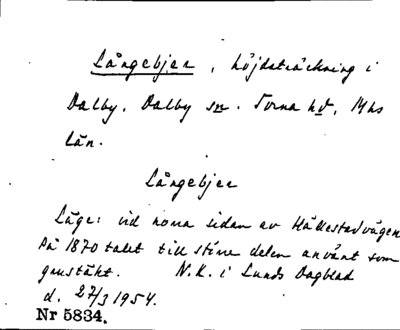 Långebjer, höjdsträckning i
Dalby, Dalby sn. Torna hd, Mhs
län.
Långebjer
Läge: vid norra sidan av Hällestadvägen
På 1870 talet till större delen använt som
grustäkt. N.K. i Lunds Dagblad
d. 27/3 1954.
Nr 5834.